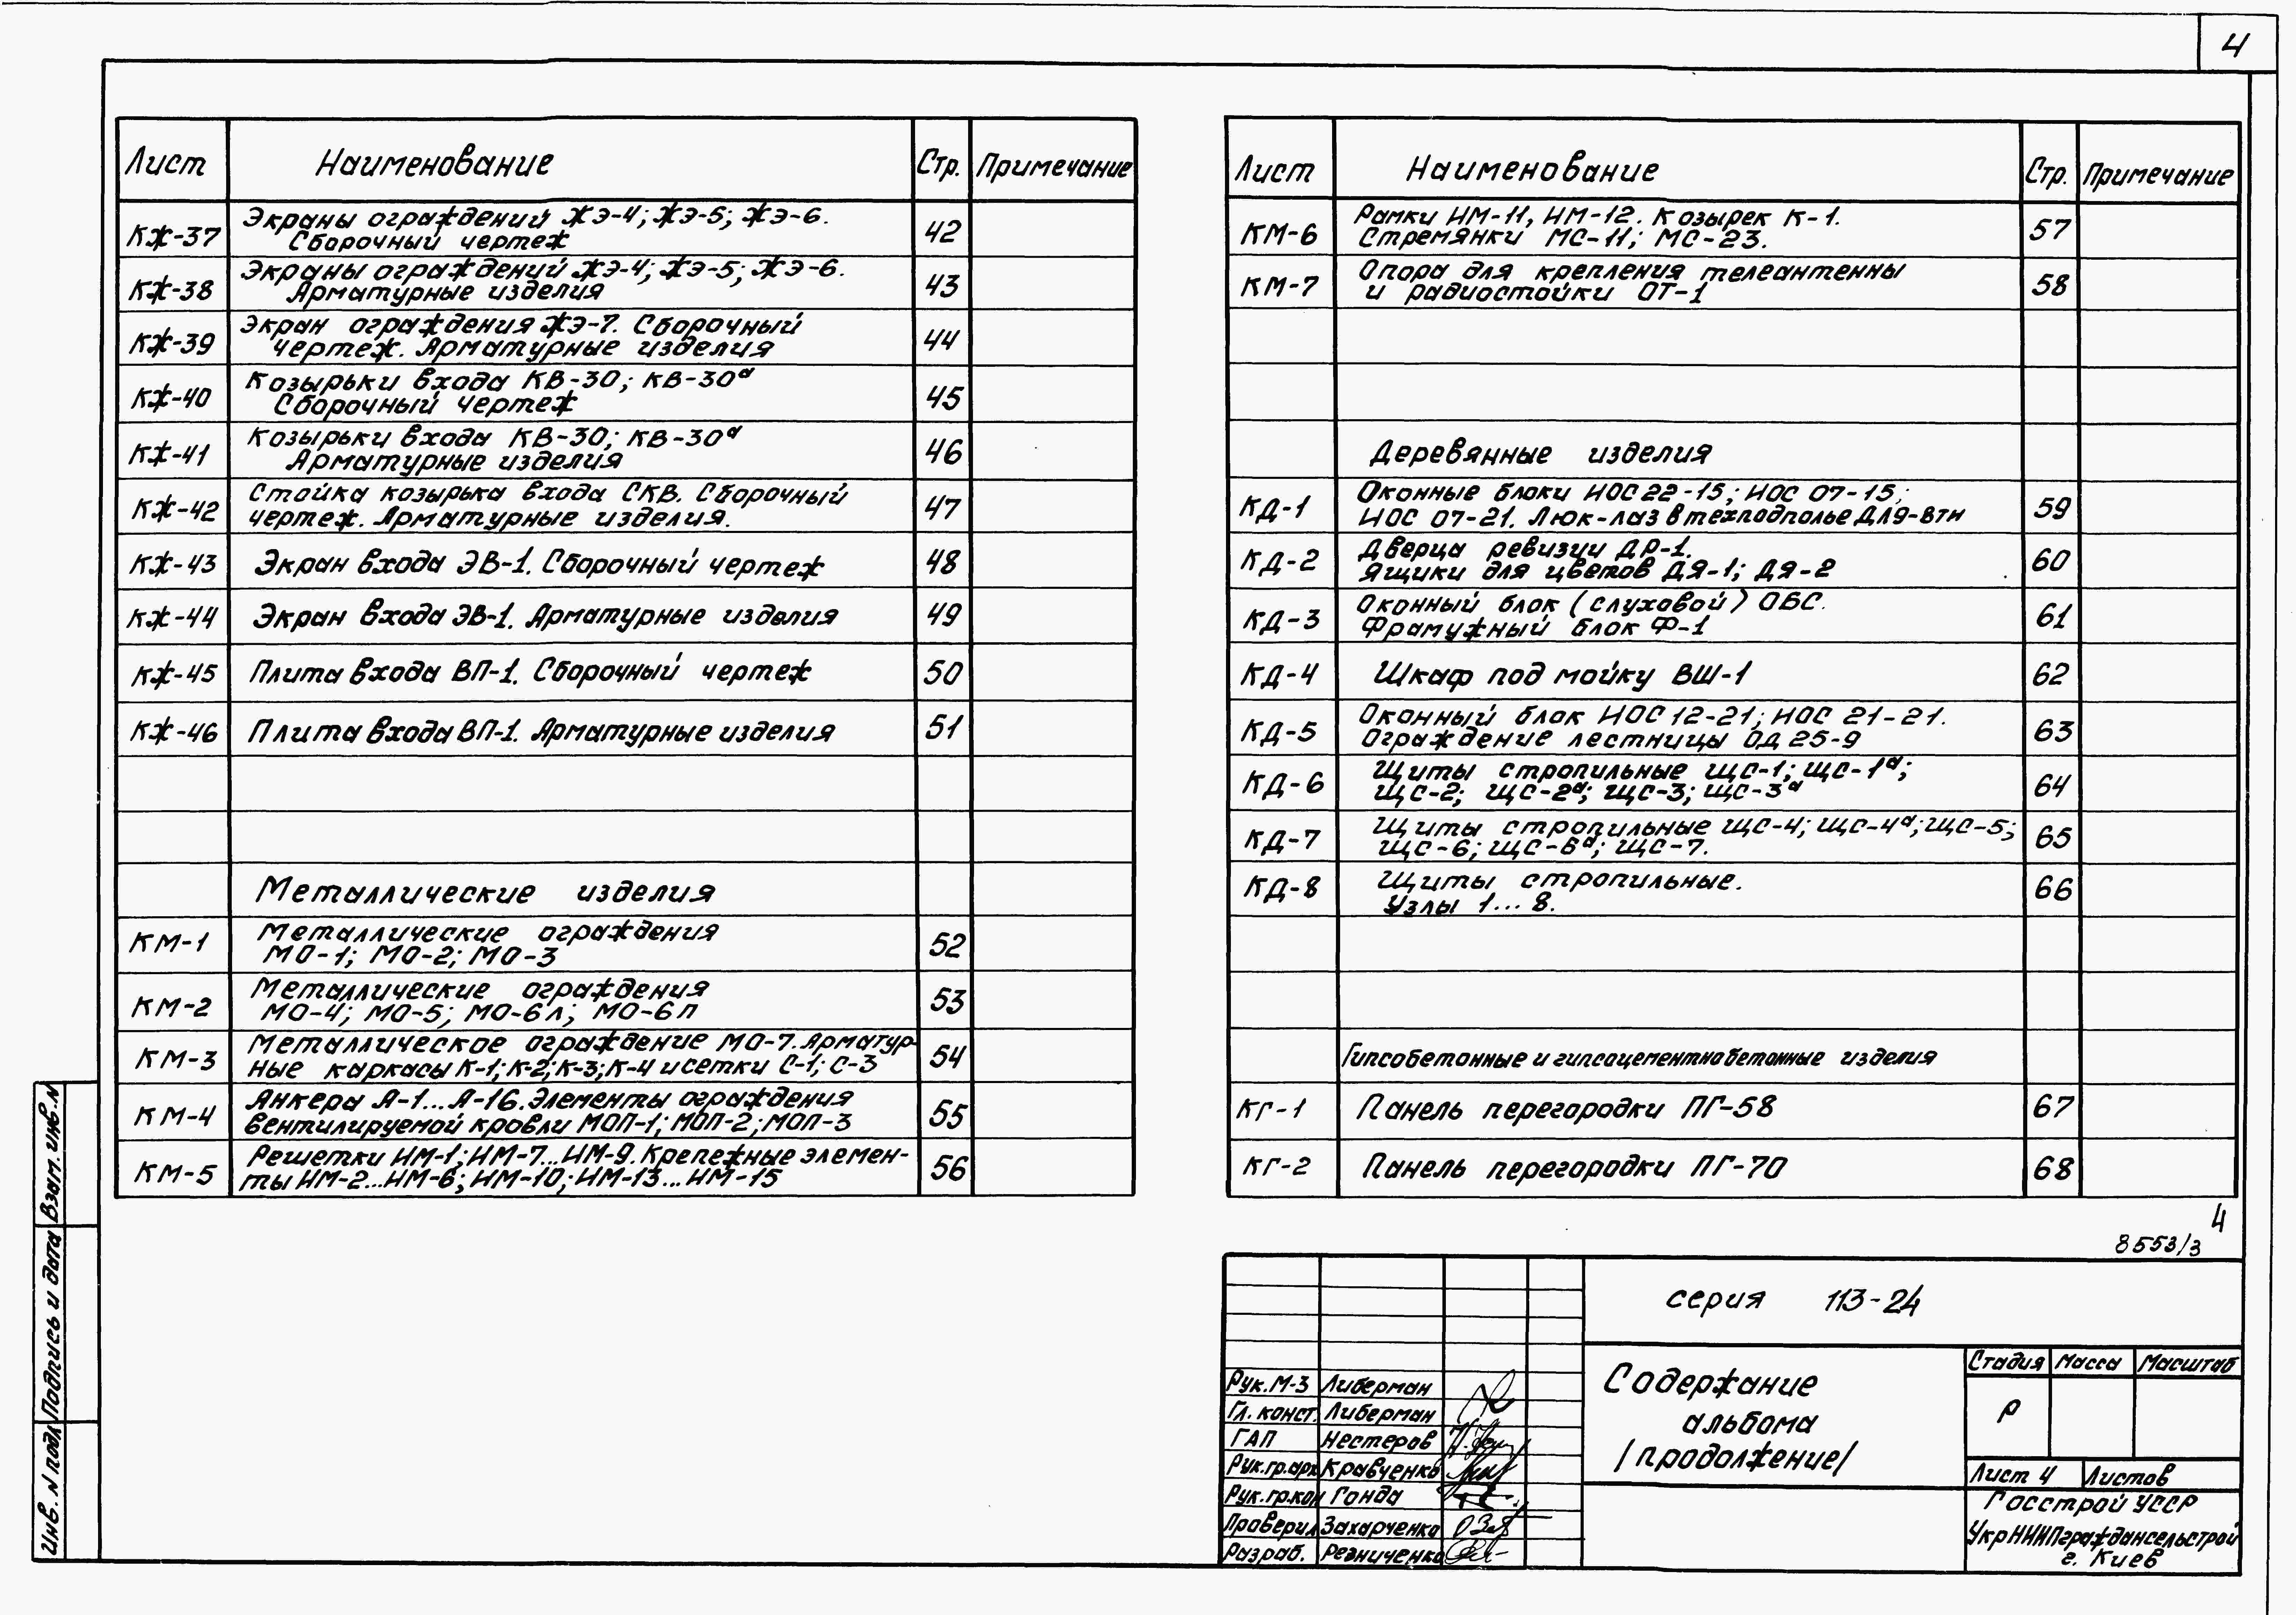 4
Лист Наименование Стр. Примечание
КЖ-37 Экраны ограждений ЖЭ-4; ЖЭ-5; ЖЭ-6. 42
Сборочный чертеж
КЖ-38 Экраны ограждений ЖЭ-4; ЖЭ-5; ЖЭ-6. 43
Арматурные изделия
КЖ-39 Экран ограждения ЖЭ-7. Сборочный 44
чертеж. Арматурные изделия
КЖ-40 Козырьки входа КВ-30; КВ-30а 45
Сборочный чертеж
КЖ-41 Козырьки входа КВ-30; КВ-30а 46
Арматурные изделия
КЖ-42 Стойка козырька входа СКВ. Сборочный 47
чертеж. Арматурные изделия.
КЖ-43 Экран входа ЭВ-1. Сборочный чертеж 48
КЖ-44 Экран входа ЭВ-1. Арматурные изделия 49
КЖ-45 Плита входа ВП-1. Сборочный чертеж 50
КЖ-46 Плита входа ВП-1. Арматурные изделия 51
Металлические изделия
КМ-1 Металлические ограждения 52
МО-1; МО-2; МО-3
КМ-2 Металлические ограждения 53
МО-4; МО-5; МО-6л; МО-6п
КМ-3 Металлическое ограждение МО-7. Арматур- 54
ные каркасы К-1; К-2; К-3; К-4 и сетки С-1; С-3
КМ-4 Анкера А-1...А-16. Элементы ограждения 55
вентилируемой кровли МОП-1; МОП-2; МОП-3
КМ-5 Решетки ИМ-1; ИМ-7...ИМ-9. Крепежные элемен- 56
ты ИМ-2...ИМ-6; ИМ-10; ИМ-13...ИМ-15
Лист Наименование Стр. Примечание
КМ-6 Рамки ИМ-11, ИМ-12. Козырек К-1. 57
Стремянки МС-11; МС-23.
КМ-7 Опора для крепления телеантенны 58
и радиостойки ОТ-1
Деревянные изделия
КД-1 Оконные блоки НОС 22-15; НОС 07-15; 59
НОС 07-21. Люк-лаз в техподполье ДЛ9-ВТН
КД-2 Дверца ревизии ДР-1. 60
Ящики для цветов ДЯ-1; ДЯ-2
КД-3 Оконный блок (слуховой) ОБС. 61
Фрамужный блок Ф-1
КД-4 Шкаф под мойку ВШ-1 62
КД-5 Оконный блок НОС 12-21; НОС 21-21. 63
Ограждение лестницы ОД 25-9
КД-6 Щиты стропильные ЩС-1; ЩС-1а; 64
ЩС-2; ЩС-2а; ЩС-3; ЩС-3а
КД-7 Щиты стропильные ЩС-4; ЩС-4а; ЩС-5; 65
ЩС-6; ЩС-6а; ЩС-7.
КД-8 Щиты стропильные. 66
Узлы 1...8.
Гипсобетонные и гипсоцементнобетонные изделия
КГ-1 Панель перегородки ПГ-58 67
КГ-2 Панель перегородки ПГ-70 68
4
8553/3
серия 113-24
Содержание
альбома
/продолжение/
Стадия Масса Масштаб
Р
Лист 4 Листов
Госстрой УССР
УкрНИИПграждансельстрой
г. Киев
Рук. М-3 Либерман
Гл. конст. Либерман
ГАП Нестеров
Рук. гр. арх Кравченко
Рук. гр. кон Гонда
Проверил Захарченко
Разраб. Резниченко
Взам. инв. N
Подпись и дата
Инв. N подл